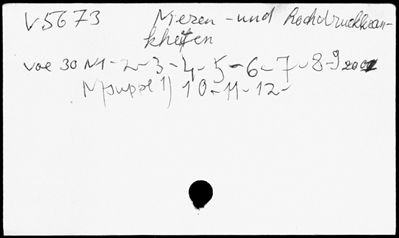 V5673 Nieren - und Hochdruckkran-
kheiten
vol 30 N1-2-3-4-5-6-7-8-9 2001
N supple 1) 10-11-12-